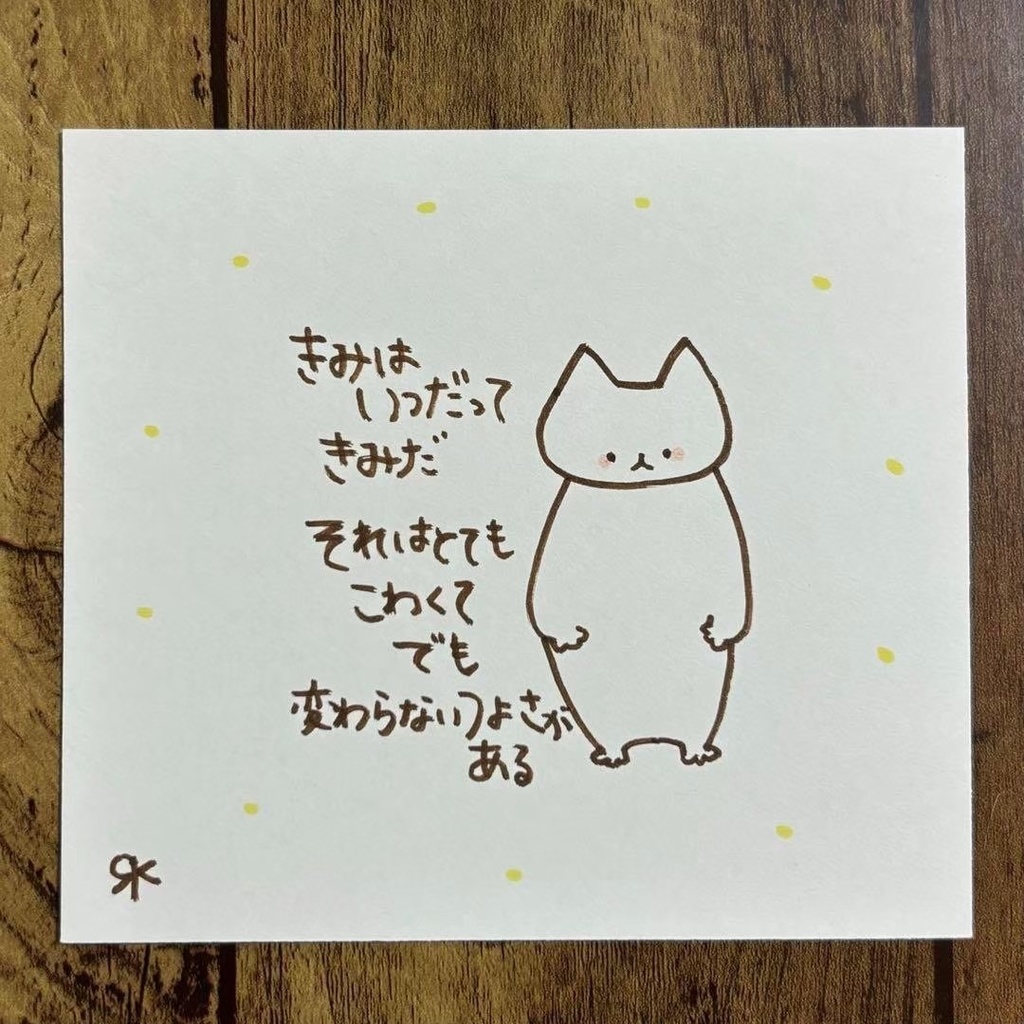 きみは
いつだって
きみだ
それはとても
こわくて
でも
変わらないつよさが
ある